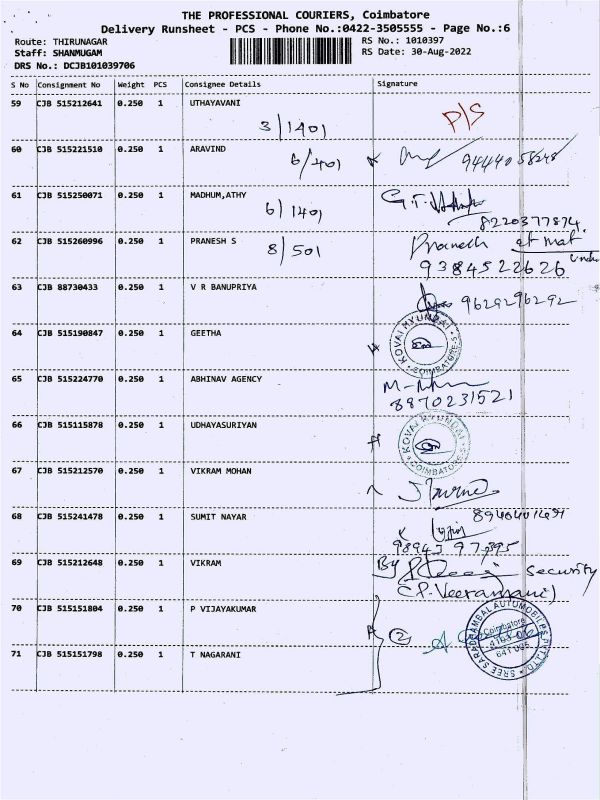 THE PROFESSIONAL COURIERS, Coimbatore
Delivery Runsheet - PCS - Phone No.:0422-3505555 - Page No.:6
Route: THIRUNAGAR
RS No.: 1010397
Staff: SHANMUGAM
RS Date: 30-Aug-2022
DRS No.: DCJB101039706
S No Consignment No Weight PCS Consignee Details Signature
59 CJB 515212641 0.250 1 UTHAYAVANI P/S
3/1401
60 CJB 515221510 0.250 1 ARAVIND
6/401
61 CJB 515250071 0.250 1 MADHUM,ATHY
6/1401
8220377874
62 CJB 515260996 0.250 1 PRANESH S
8/501
9384522626
63 CJB 88730433 0.250 1 V R BANUPRIYA
9629296292
64 CJB 515190847 0.250 1 GEETHA
KOVAI HYUNDAI COIMBATORE-5
65 CJB 515224770 0.250 1 ABHINAV AGENCY
8870231521
66 CJB 515115878 0.250 1 UDHAYASURIYAN
KOVAI HYUNDAI COIMBATORE-5
67 CJB 515212570 0.250 1 VIKRAM MOHAN
68 CJB 515241478 0.250 1 SUMIT NAYAR
69 CJB 515212648 0.250 1 VIKRAM
By Security
(P. Veeramani)
70 CJB 515151804 0.250 1 P VIJAYAKUMAR
2
Coimbatore
641 005
71 CJB 515151798 0.250 1 T NAGARANI